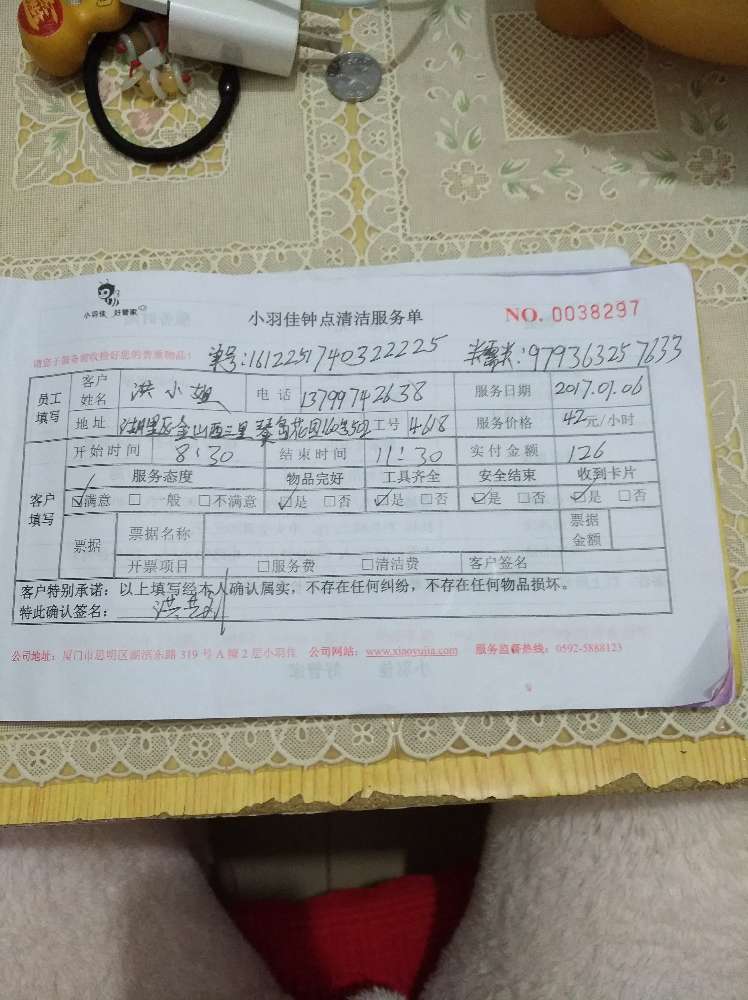 小羽佳 好管家
小羽佳钟点清洁服务单
NO. 0038297
请您于服务前收捡好您的贵重物品!
单号:1612251740322225 :979363257633
员工填写 客户姓名 洪小姐 电话 13799742638 服务日期 2017.01.06
地址 湖里区金山西三里 花园 工号 4618 服务价格 42元/小时
开始时间 8:30 结束时间 11:30 实付金额 126
客户填写 服务态度 物品完好 工具齐全 安全结束 收到卡片
☑满意 □一般 □不满意 ☑是 □否 ☑是 □否 ☑是 □否 ☑是 □否
票据 票据名称 票据金额
开票项目 □服务费 □清洁费 客户签名
客户特别承诺:以上填写经本人确认属实,不存在任何纠纷,不存在任何物品损坏。
特此确认签名: 洪
公司地址:厦门市思明区湖滨东路 319 号 A 幢 2 层小羽佳 公司网站:www.xiaoyujia.com 服务监督热线:0592-5888123